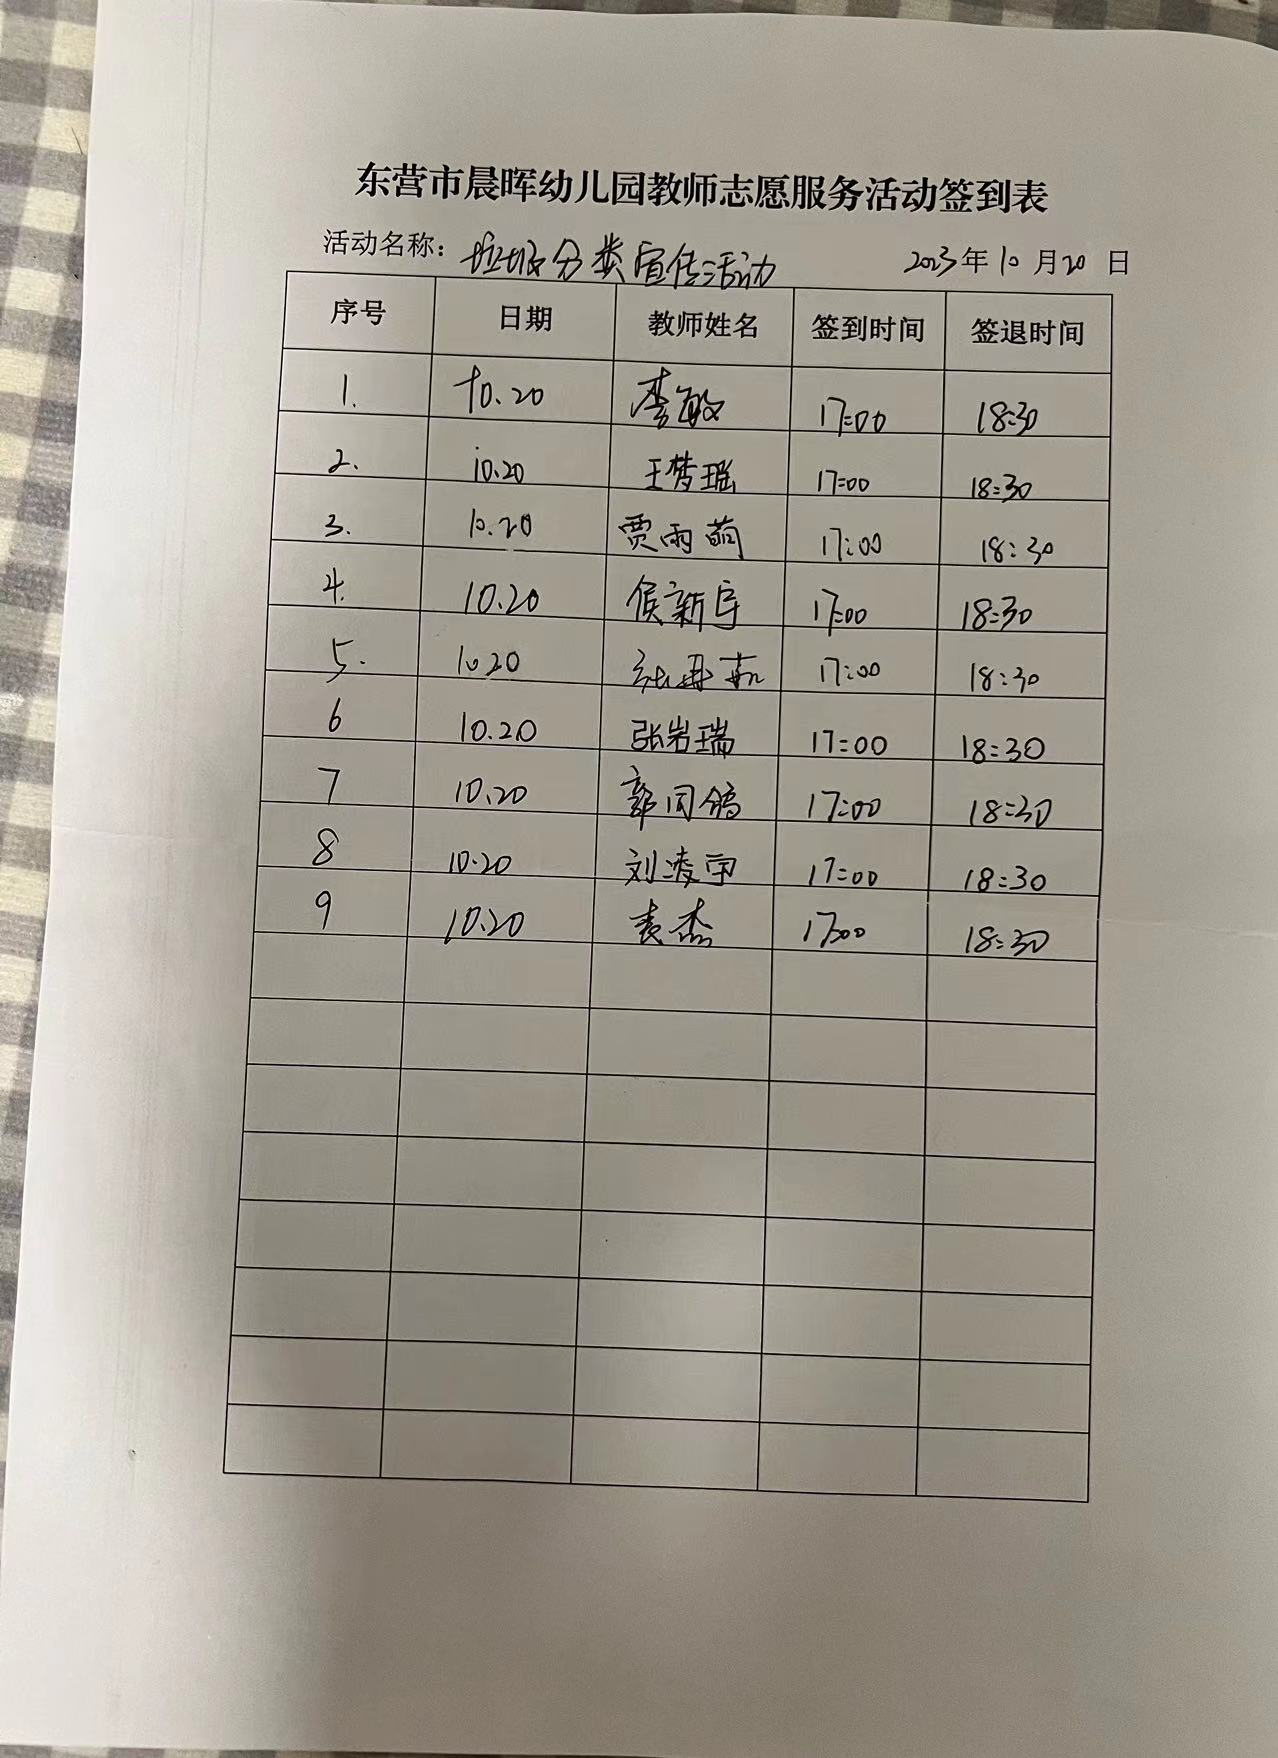 东营市晨晖幼儿园教师志愿服务活动签到表
活动名称：垃圾分类宣传活动 2023年10月20日
序号 日期 教师姓名 签到时间 签退时间
1. 10.20 李敏 17:00 18:30
2. 10.20 王梦瑶 17:00 18:30
3. 10.20 贾雨萌 17:00 18:30
4. 10.20 侯新宇 17:00 18:30
5. 10.20 17:00 18:30
6 10.20 张岩瑞 17:00 18:30
7 10.20 17:00 18:30
8 10.20 刘凌宇 17:00 18:30
9 10.20 袁杰 17:00 18:30